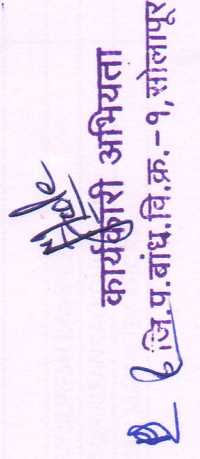 कार्यकारी अभियता
जि.प.बांध.वि.क्र.-१,सोलापूर